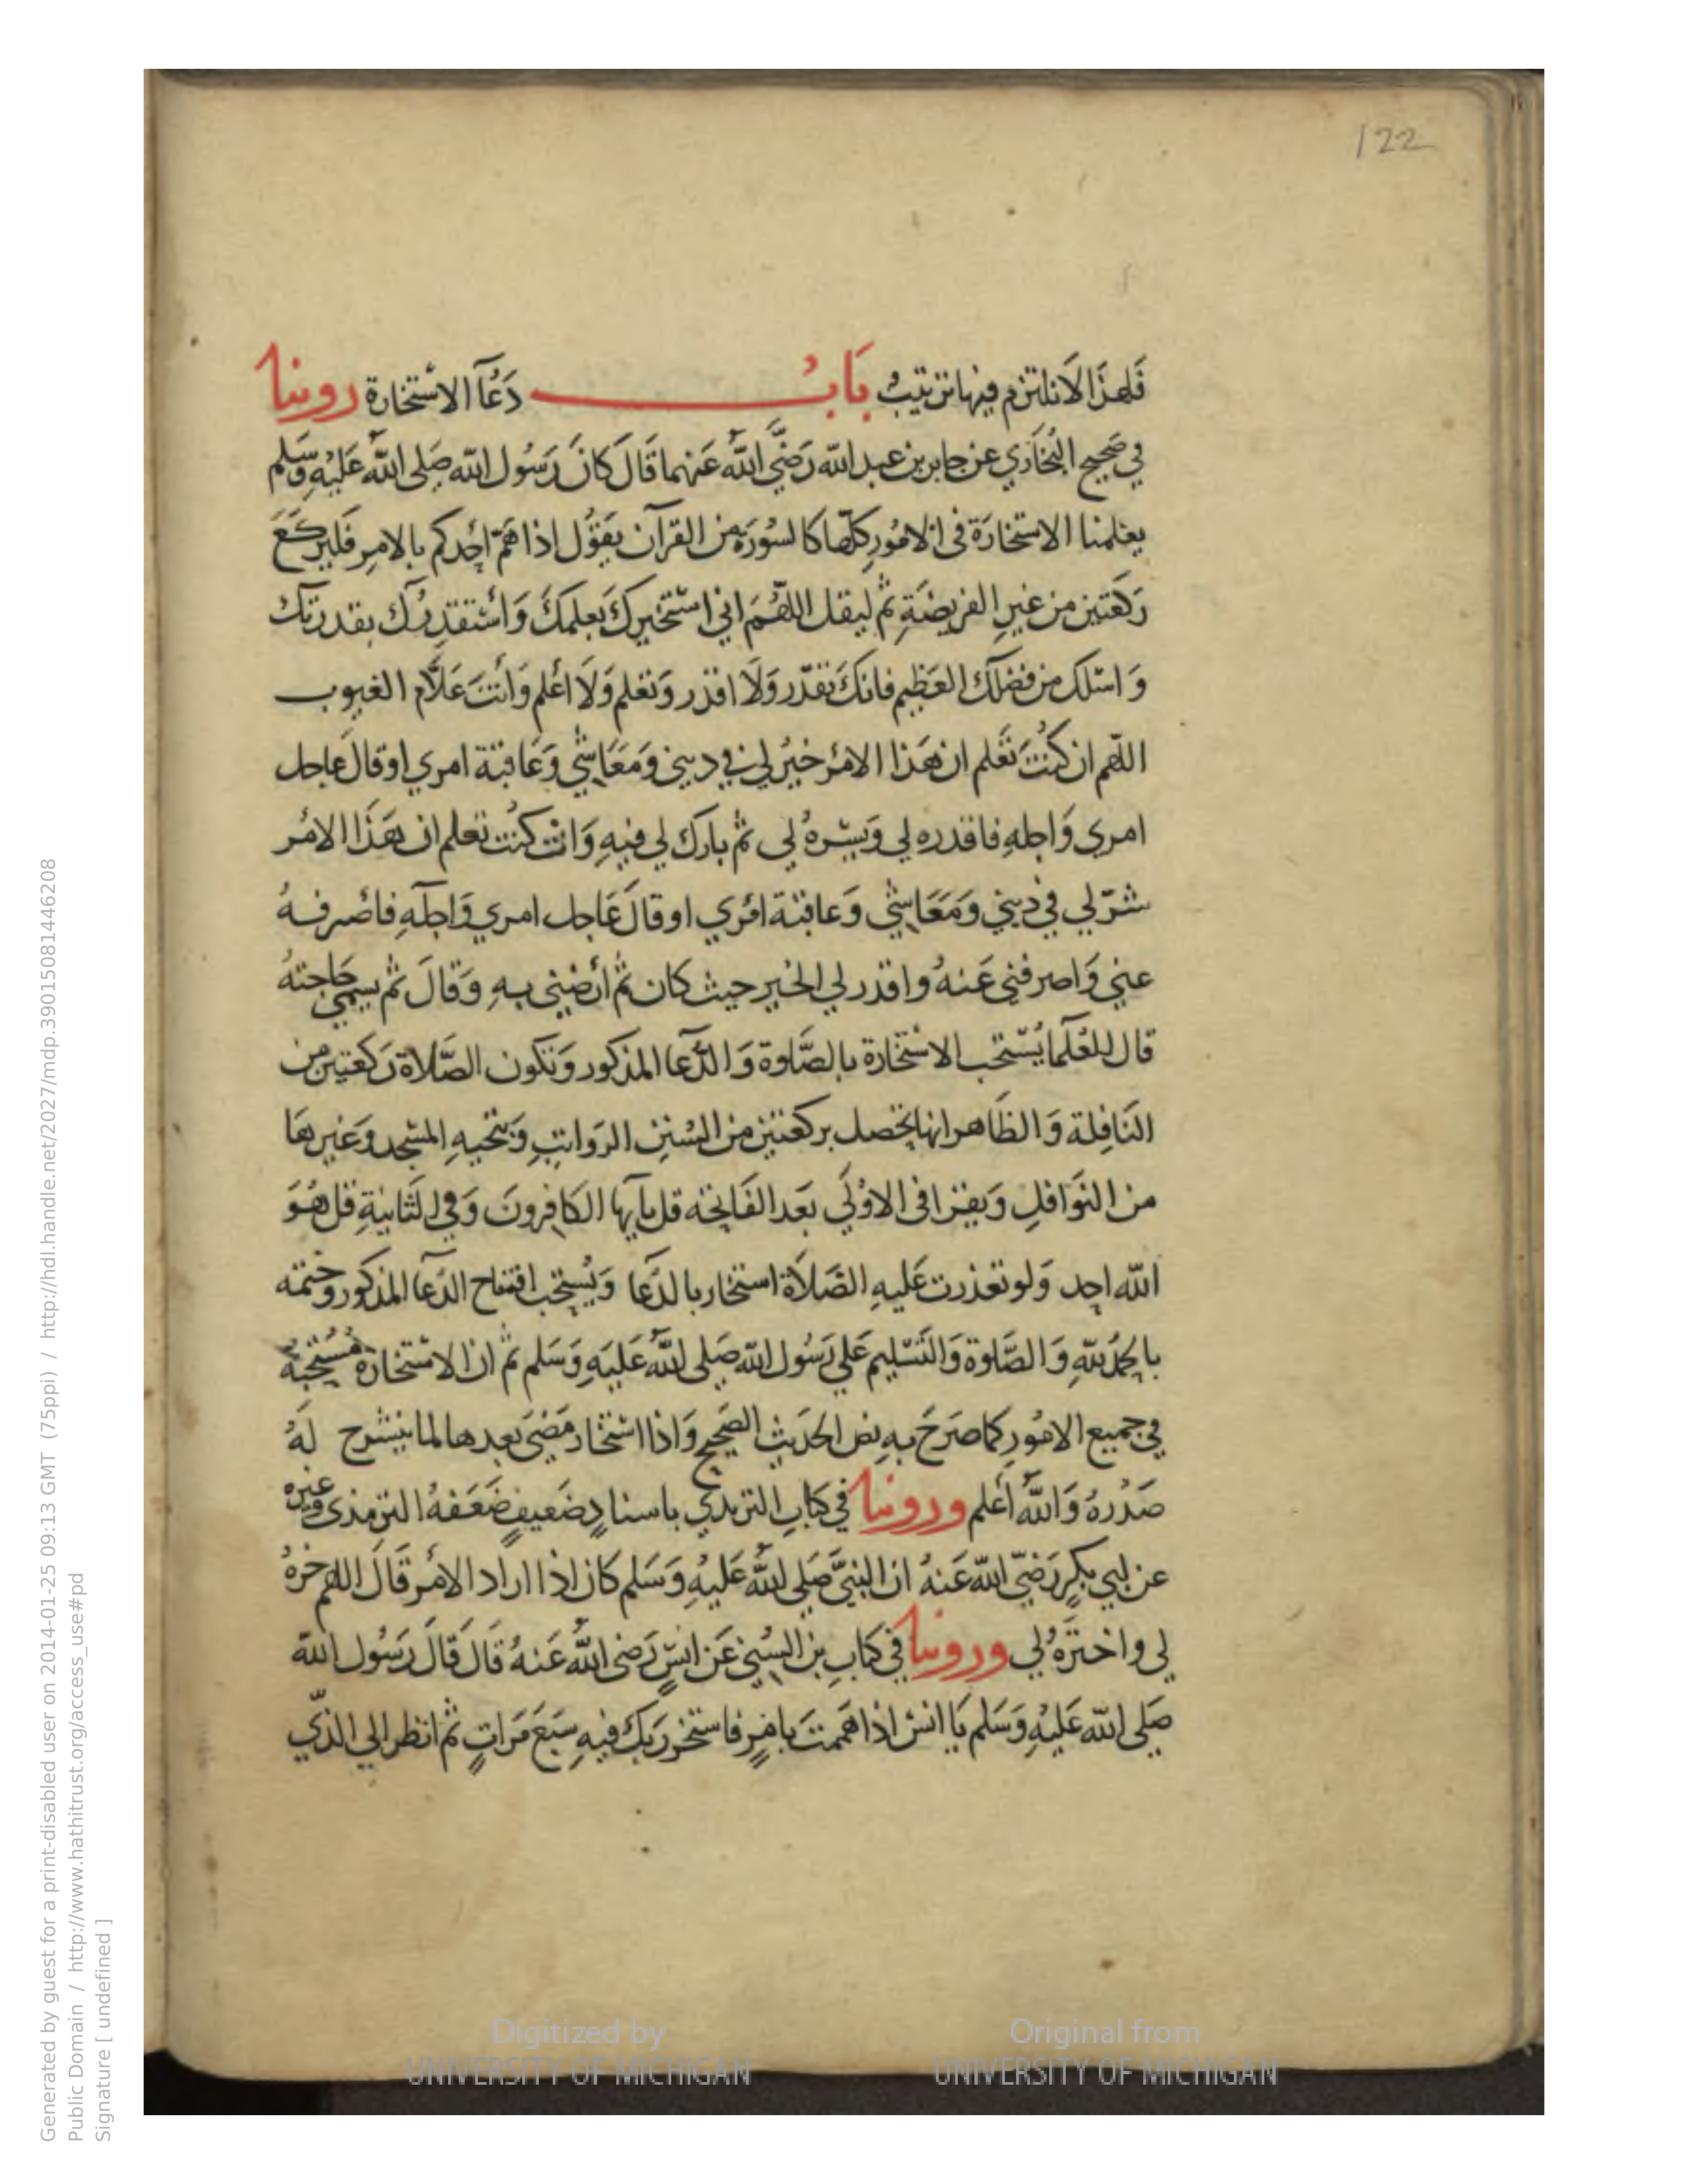 122
فَلهذَا لَا نلتزم فيها ترتيبٌ بَابُ دَعُآ الاسْتخارة روينا
في صَحِيح البُخَاري عن جابر بن عبد الله رَضيَّ اللهُ عَنهما قَالَ كَانَ رَسُول الله صَلى اللهُ عَليْهِ وَسَلم
يعلمنا الاستخارَة فى الامُورِ كلّها كا لسُورَة من القرآن يَقوُل اذا هَمّ احدكم بالامِر فَليركَعَ
رَكعَتين من غيرِ الفريضَةِ ثم ليقل اللهُمَ اني استَخيركَ بعلمكَ وَاسْتقدِرُك بقدرتك
وَاسئلك من فضلك العَظِيم فانكَ تقدّر وَلَا اقدر وَتعلم وَلَا اعْلم وَأنتَ عَلاَّم الغيوب
اللّهم ان كنُتَ تَعلم ان هَذا الامْر خيرُ لي في ديني وَمَعَاشي وَعَاقبة امري اوقالَ عاجل
امري وَاجلهِ فاقدره لي وَيسّرهُ لي ثم بارك لي فيهِ وَانْ كنُت تعلم ان هَذَا الامُر
شرّ لي في ديني وَمَعَاشي وَعاقبَة امْري اوقالَ عَاجل امري وَاجلهِ فاصْرفهُ
عني وَاصرفني عَنهُ واقدر لي الخير حيث كان ثم أرضني بهِ وَقالَ ثم يسمي حَاجتهُ
قال للعُلَمآ يُسْتحب الاستْخارة بالصَّلوة وَالدُّعَآ المذكور وَتكون الصَّلاة رَكعتين من
النَافِلة وَالظَاهر انها تحصل بركعَتين من السُنن الرَواتبِ وَبتحيهِ المسْجد وَغيرهَا
من النوَافلِ وَيقرا فى الاوْلَي بَعد الفَاتحة قل يآيها الكافِرونَ وَفي الثَانيةِ قل هُوَ
الله احد وَلو تعذرت عَليهِ الصَّلاَة استخار بالدُّعآ وَيُستحَب افتتاح الدّعآ المذكور وختمه
بالحمدُ للهِ وَالصَّلوة وَالتَسْليم عَلي رَسُول الله صَلى اللهُ عَليَهِ وَسَلم ثم ان الاسْتخارة مُسْتحبةُ
في جميع الامُورِ كما صَرَحَ بهِ نص الحَديث الصَحِيح وَاذا اسْتخار مَضيَ بعدها لما ينشرح لَهُ
صَدْرهُ وَاللهُ اَعْلم وروينا في كتابِ الترمدي باسنادٍ ضَعيفٍ ضَعَفهُ الترمذى وَغيره
عن ابي بَكرٍ رَضيّ الله عَنهُ ان النبيَّ صَلي اللهُ عَليْهِ وَسَلم كان اذا اراد الامْر قَالَ اللهم خرهُ
لى واختَرَهُ لي وروينا في كتابِ بن السُني عَن انَسٍ رَضى اللهُ عَنهُ قَالَ قَالَ رَسُول الله
صَلى الله عَليْهِ وَسَلم يَا انس اذا هَممتَ بامْرٍ فاستخر رَبكَ فيهِ سَبعَ مَراتٍ ثم انظر الي الذّي
Digitized by
UNIVERSITY OF MICHIGAN
Original from
UNIVERSITY OF MICHIGAN
Generated by guest for a print-disabled user on 2014-01-25 09:13 GMT (75ppi) / http://hdl.handle.net/2027/mdp.39015081446208
Public Domain / http://www.hathitrust.org/access_use#pd
Signature [ undefined ]